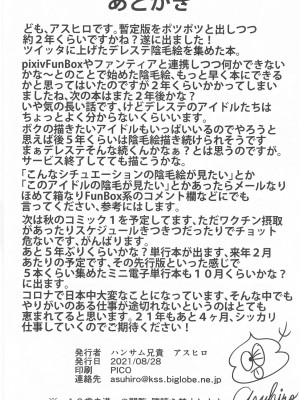 あとがき
ども、アスヒロです。暫定版をポツポツと出しつつ
約2年くらいですかね?遂に出ました!
ツイッタに上げたデレステ陰毛絵を集めた本。
pixivFunBoxやファンティアと連携しつつ何かできない
かな~とのことで始めた陰毛絵、もっと早く本にできる
かと思っていたのですが2年くらいかかってしまい
ましたね、次の本はまた2年後かな?
いや気の長い話です、けどデレステのアイドルたちは
ちょっとよく分からないくらいいます。
ボクの描きたいアイドルもいっぱいいるのでやろうと
思えば後5年くらいは陰毛絵描き続けられそうです
まぁデレステそんな続くんかなぁ?とは思うのですが。
サービス終了してても描こうかな。
「こんなシチュエーションの陰毛絵が見たい」とか
「このアイドルの陰毛が見たい」とかあったらメールなり
ほめて箱なりFunBox系のコメント欄などにでも
言ってください、参考にはします。
次は秋のコミック1を予定してます、ただワクチン摂取
があったりスケジュールきつきつだったりでチョット
危ないです、がんばります。
あと5年ぶりくらいかな?単行本が出ます、来年2月
あたりの予定です、その先行版といった感じで
5本くらい集めたミニ電子単行本も10月くらいかな?
に出ます。
コロナで日本中大変なことになっています、そんな中でも
やりがいのある仕事が途切れないというのはとても
恵まれてると思います。21年もあと4ヶ月、シッカリ
仕事していくのでご期待ください!
発行者 ハンサム兄貴 アスヒロ
発行日 2021/08/28
印刷 PICO
連絡先 asuhiro@kss.biglobe.ne.jp
Asuhiro